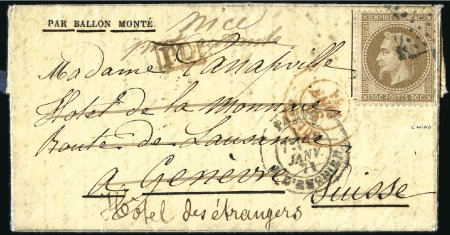 PAR BALLON MONTÉ
Nice
PD
EMPIRE FRANÇAIS
30C POSTES 30C
Madame
Hotel de la Monnaie
Route de Lausanne
à Genève
Suisse
JANV.
Hôtel des étrangers